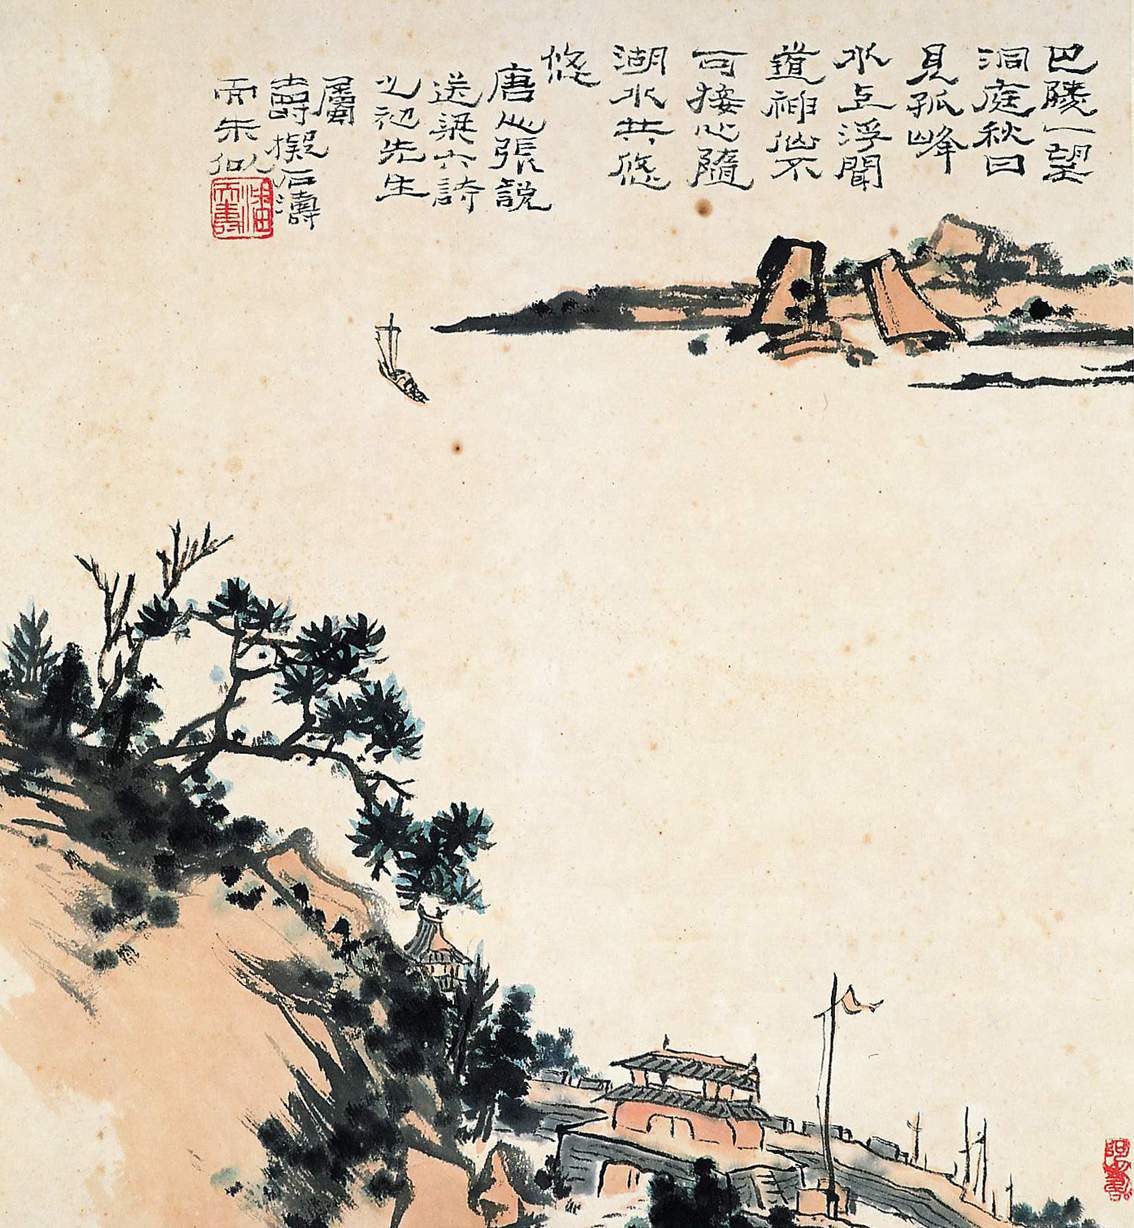 巴陵一望
洞庭秋日
見孤峰
水上浮聞
道神仙不
可接心隨
湖水共悠
悠
唐人張說
送梁六詩
之初先生
屬
壽擬石濤
而未似
潘天壽